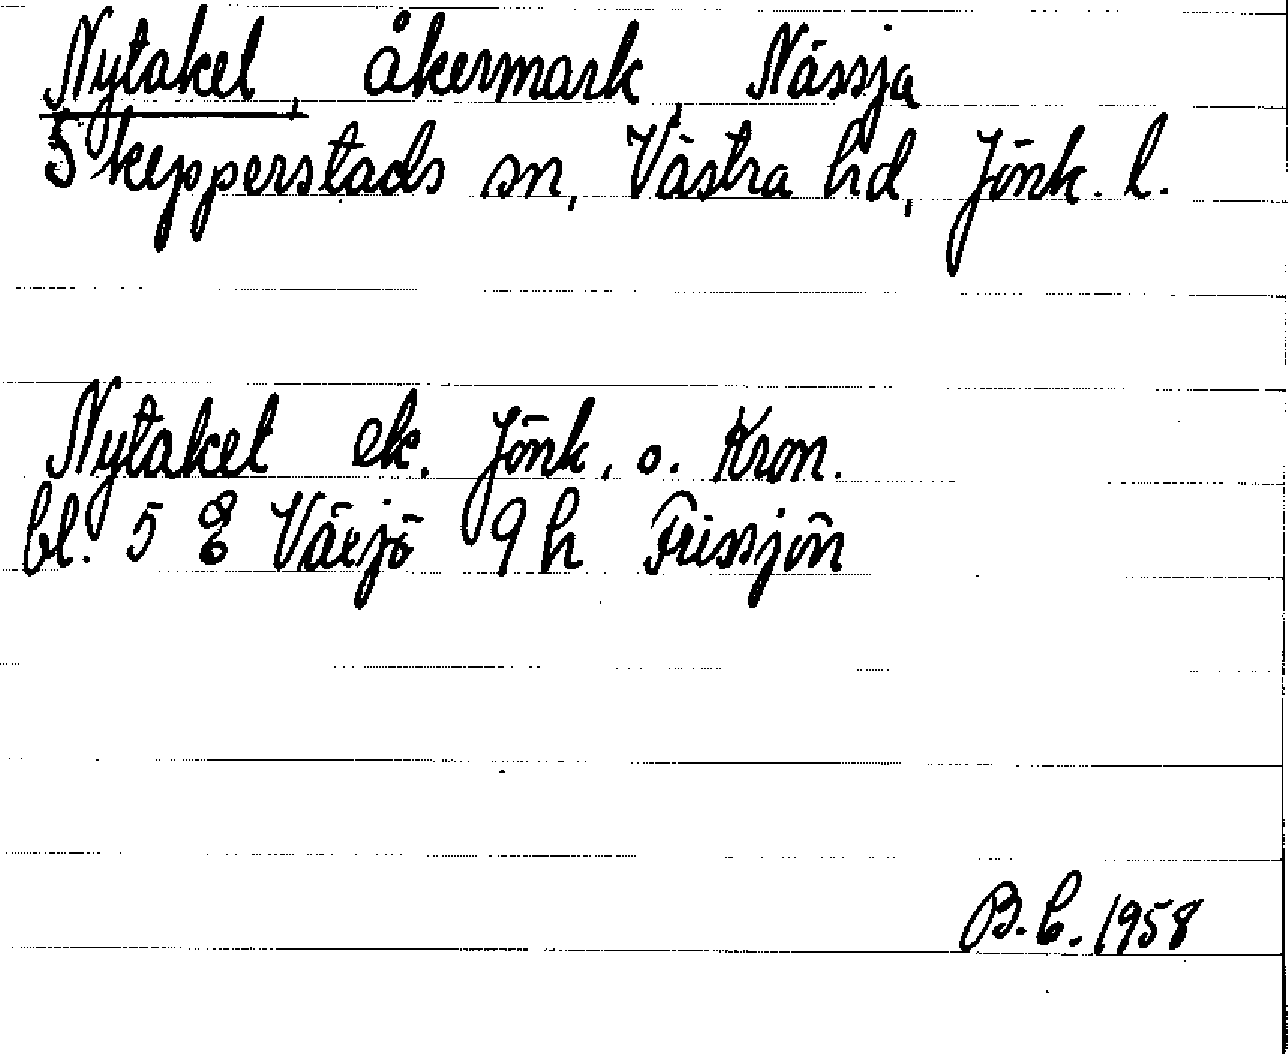 Nytaket, åkermark, Nässja
Skepperstads sn, Västra hd, Jönk. l.
Nytaket ek. Jönk. o. Kron.
bl. 5 Växjö 9 h Frissjön
B.C. 1958